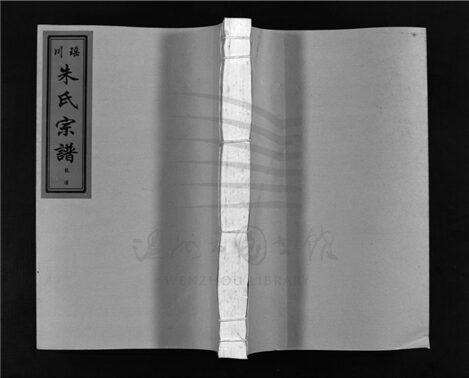 瑶川
朱氏宗譜
温州市图书馆
WENZHOU LIBRARY